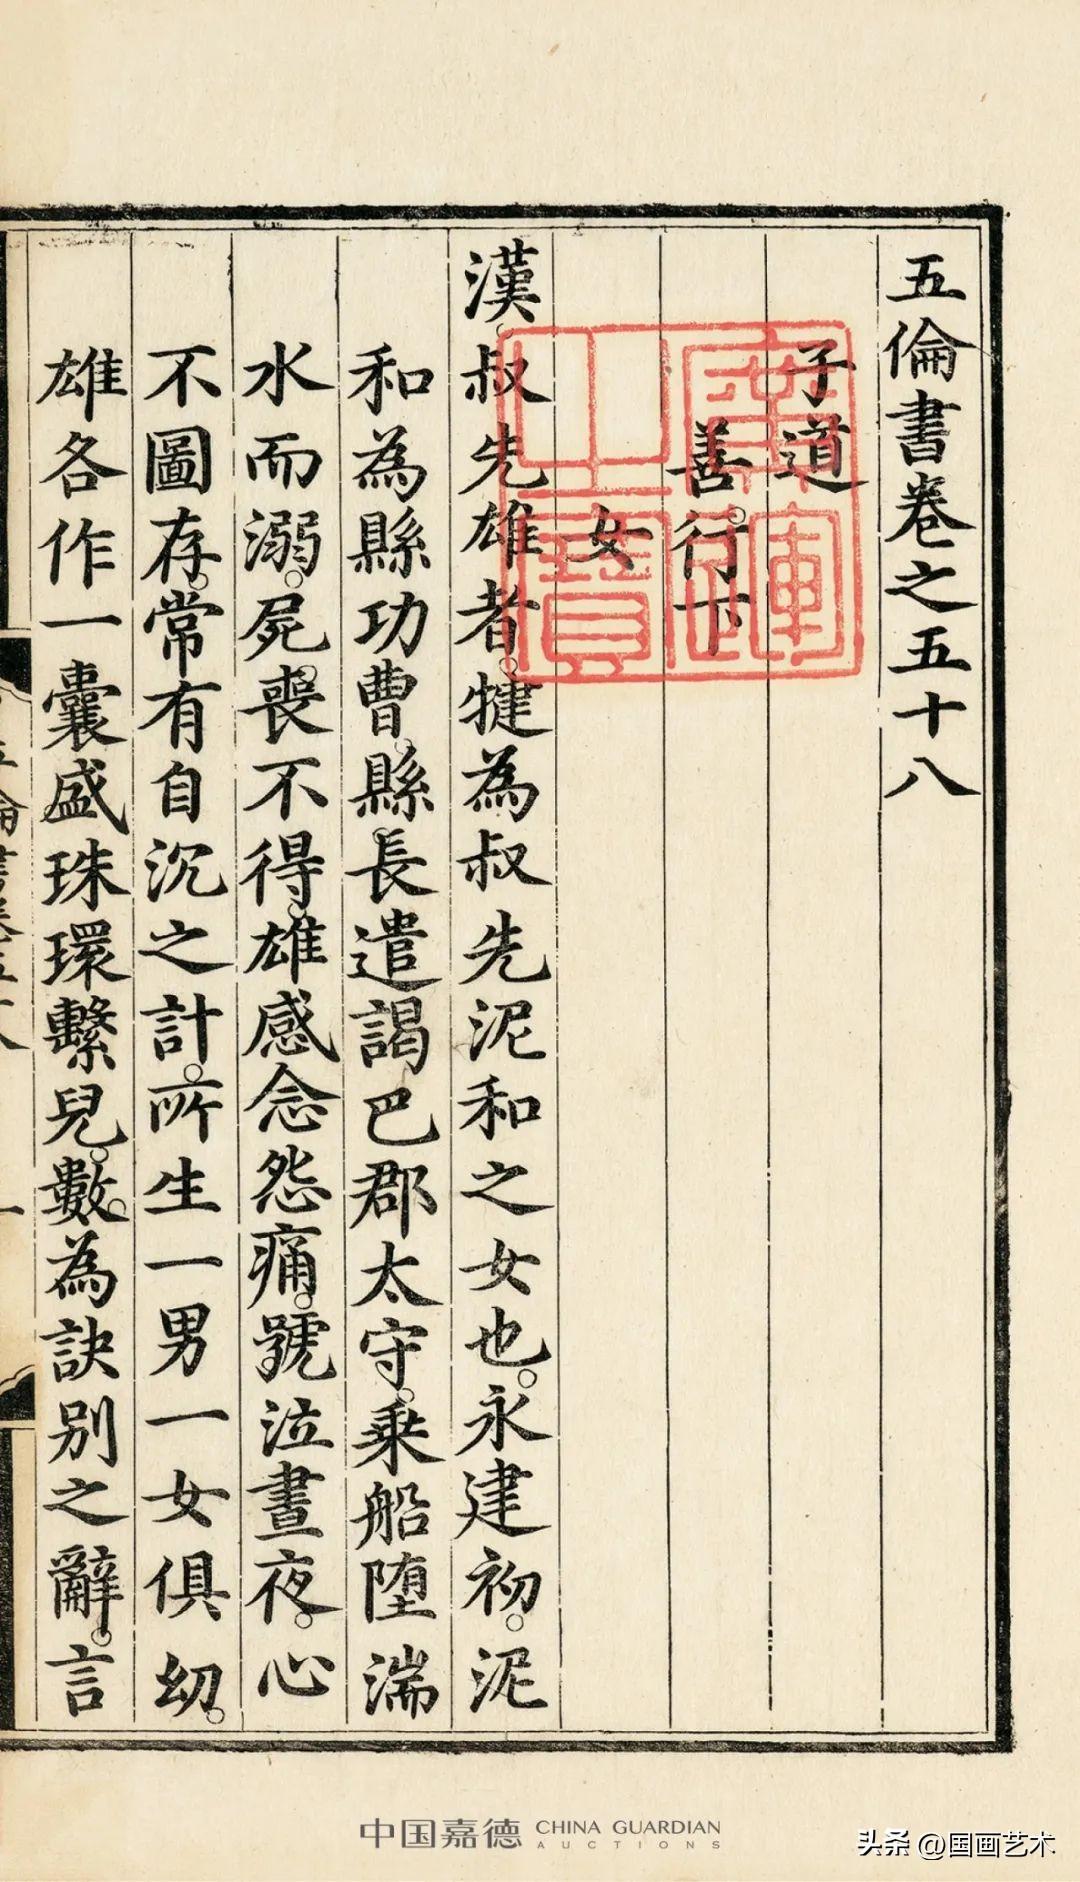 五倫書卷之五十八
子道
善行下
女
漢。叔先雄者。犍為叔先泥和之女也。永建初。泥
和為縣功曹。縣長遣謁巴郡太守。乘船墮湍
水而溺。屍喪不得。雄感念怨痛。號泣晝夜。心
不圖存。常有自沉之計。所生一男一女俱幼。
雄各作一囊盛珠環繫兒。數為訣别之辭。言
中国嘉德 CHINA GUARDIAN
AUCTIONS
头条 @国画艺术